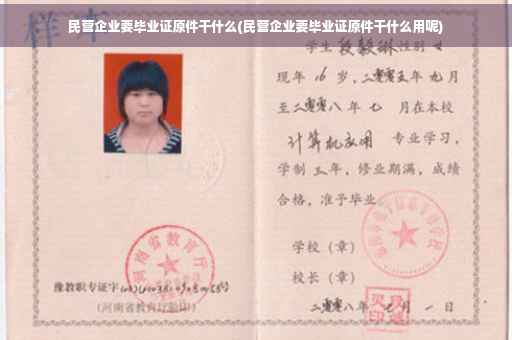 民营企业要毕业证原件干什么(民营企业要毕业证原件干什么用呢)
样本
学生 段毅琳 性别 女
现年 16 岁，二零零五年 九月
至二零零八年 七 月在本校
计算机应用 专业学习，
学制 三 年，修业期满，成绩
合格，准予毕业
学校（章）
校长（章）
二零零八年 七 月 一 日
河南省教育厅
豫教职专证字
(河南省教育厅验印)